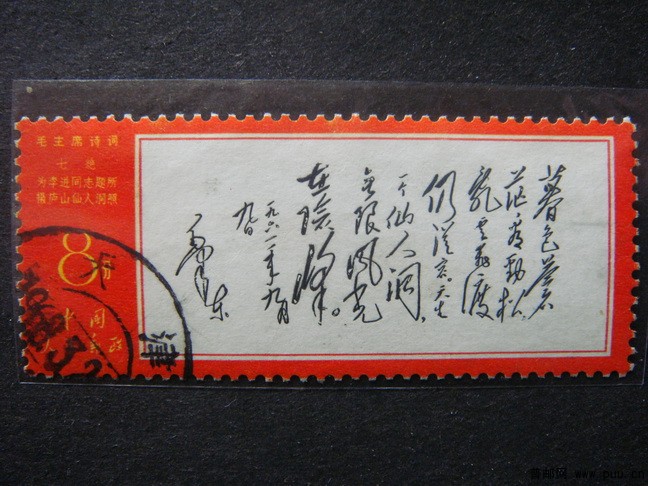 毛主席诗词
七绝
为李进同志题所
摄庐山仙人洞照
8分
中国
人民邮政
暮色苍茫看劲松
乱云飞渡
仍从容天生
一个仙人洞
无限风光
在险峰。
一九六一年九月
九日
毛泽东
津
喜邮网 www.puu.cn